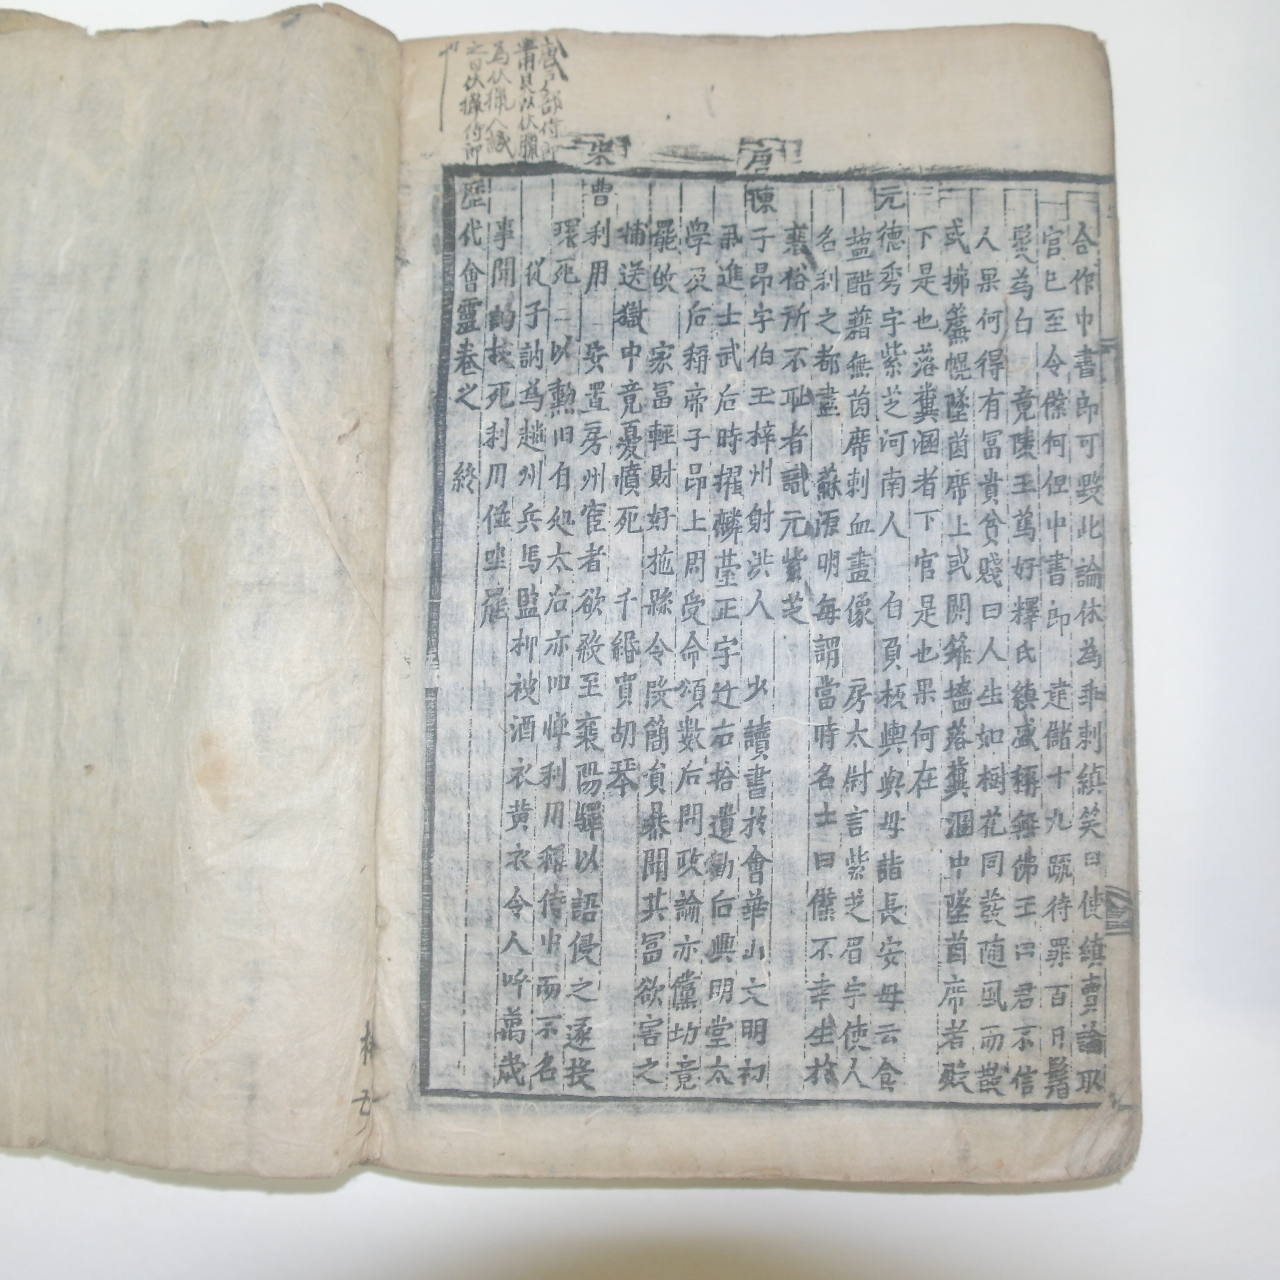 唐戶部侍郎
蕭炅以伏臘
為伏獵人譏
之曰伏獵侍郎
合作中書郎可毀此論休為乖刺縝笑曰使縝賣論取
官已至令僕何但中書郎 建儲十九疏待罪百日鬚
髮為白 竟陵王篤好釋氏縝盛稱無佛王曰君不信
人果何得有冨貴貧賤曰人生如樹花同發随風而散
或拂簾幌墜茵席上或関籬墻落糞溷中墜茵席者殿
下是也落糞溷者下官是也果何在
元德秀字紫芝河南人 自負板輿與母詣長安母云食
盐酷藉無茵席刺血畫像 房太尉言紫芝眉宇使人
名利之都盡 蘇源明每謂當時名士曰僕不幸生於
衰俗所不耻者識元紫芝
唐
陳子昂字伯玉梓州射洪人 少讀書於會華山文明初
舉進士武后時擢麟䑓正字廷右拾遺勸后興明堂太
學及后稱帝子昂上周受命頌數后問政論亦儻功竟
罷 家冨輕財好施縣令段簡貪暴聞其冨欲害之
捕送獄中竟憂憤死 千緡買胡琴
宋
曹利用 安置房州宦者欲殺至襄陽驛以語侵之逐投
環死 以勲旧自処太后亦加憚利用稱侍中而不名
從子訥為趙州兵馬監押被酒衣黃衣令人呼萬歲
事聞訥杖死利用坐罷
歷代會靈卷之 終